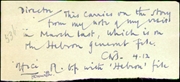 Director This carries on the story
from my note of my visit
in March last, which is on
the Hebron general file.
4.12
R. up with "Hebron" file